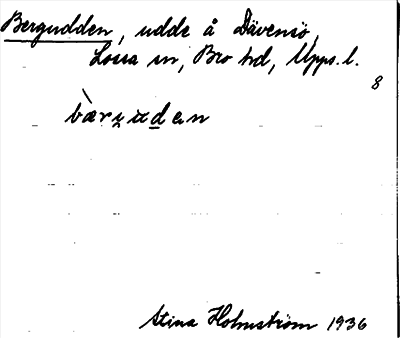 Bergudden, udde å Dävensö,
Lossa sn, Bro hd, Upps. l.
8
bær̀gudden
Stina Holmström 1936